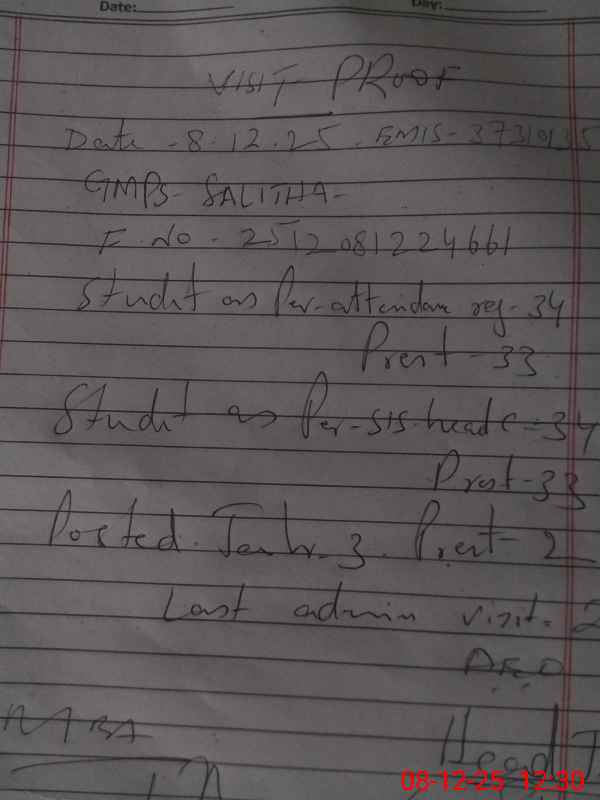 Date: Day:
VISIT PROOF
Date - 8.12.25. EMIS- 37310135
GMPS- SALITHA-
F. No - 251208122 4661
Studnt as Per-attendanc reg- 34
Presnt - 33
Studnt as Per-sis-head c = 34
Prest - 33
Posted. 3. Presnt - 2
Last admin visit. 2
AEO
Head T
08-12-25 12:30